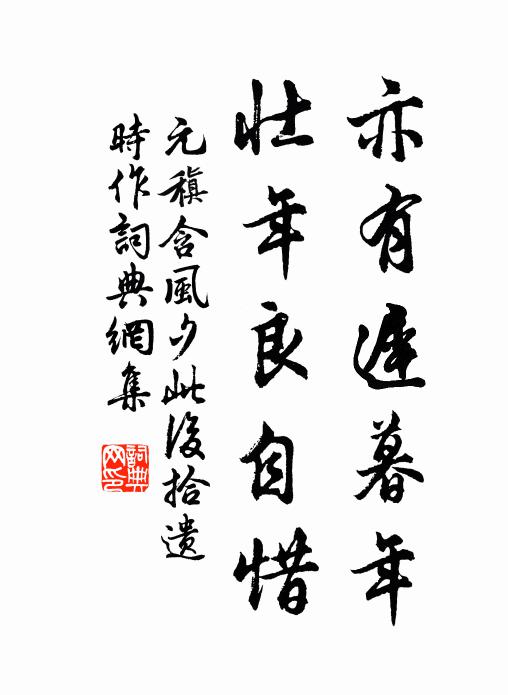 亦有遲暮年
壯年良自惜
元稹含風夕此後拾遺
時作詞典網集
詞典
网印